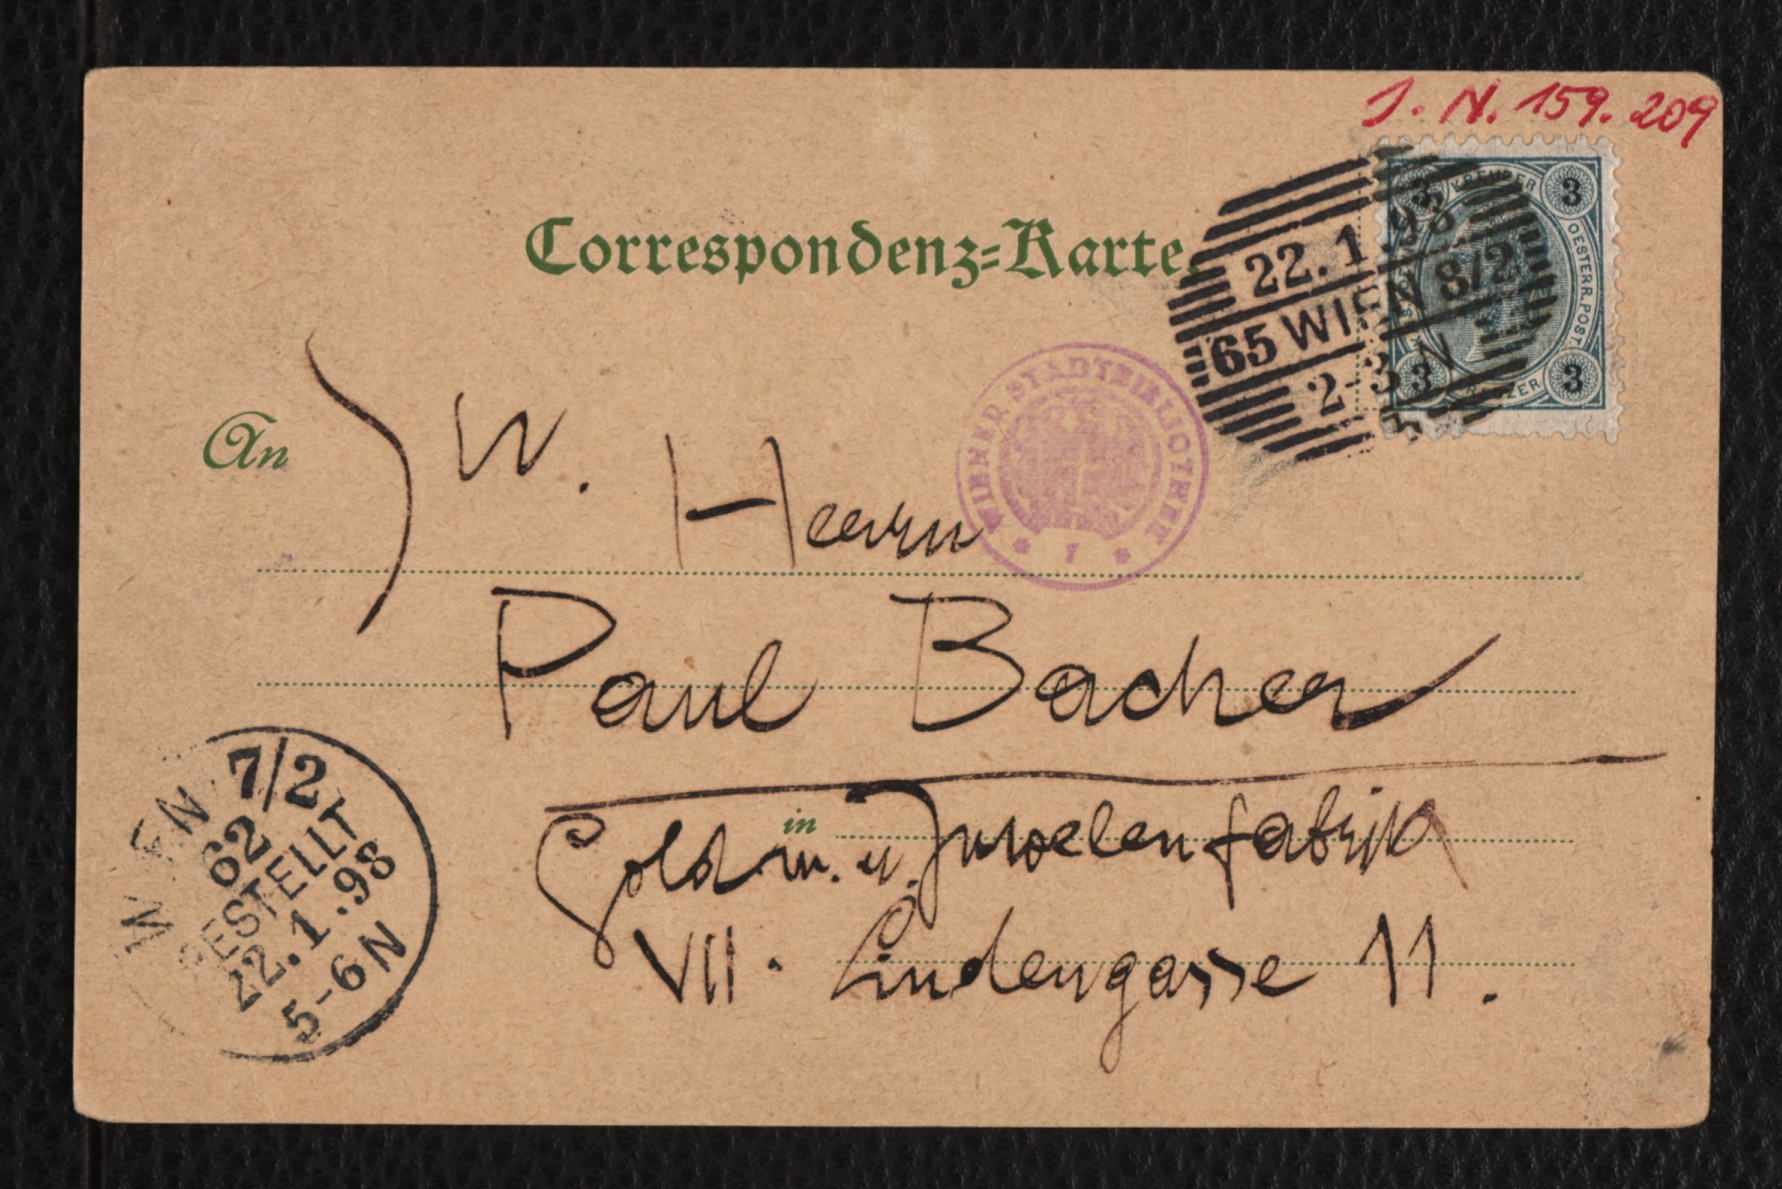 J. N. 159.209
Correspondenz-Karte.
KREUZER
3
OESTERR. POST
3 3
22.1.98
65 WIEN 8/2
2-3 N
WIENER STADTBIBLIOTHEK
* 1 *
An
W. Herrn
Paul Bacher
in
Gold w. u. Juwelenfabrik
VII. Lindengasse 11.
WIEN 7/2
62
BESTELLT
22.1.98
5-6 N